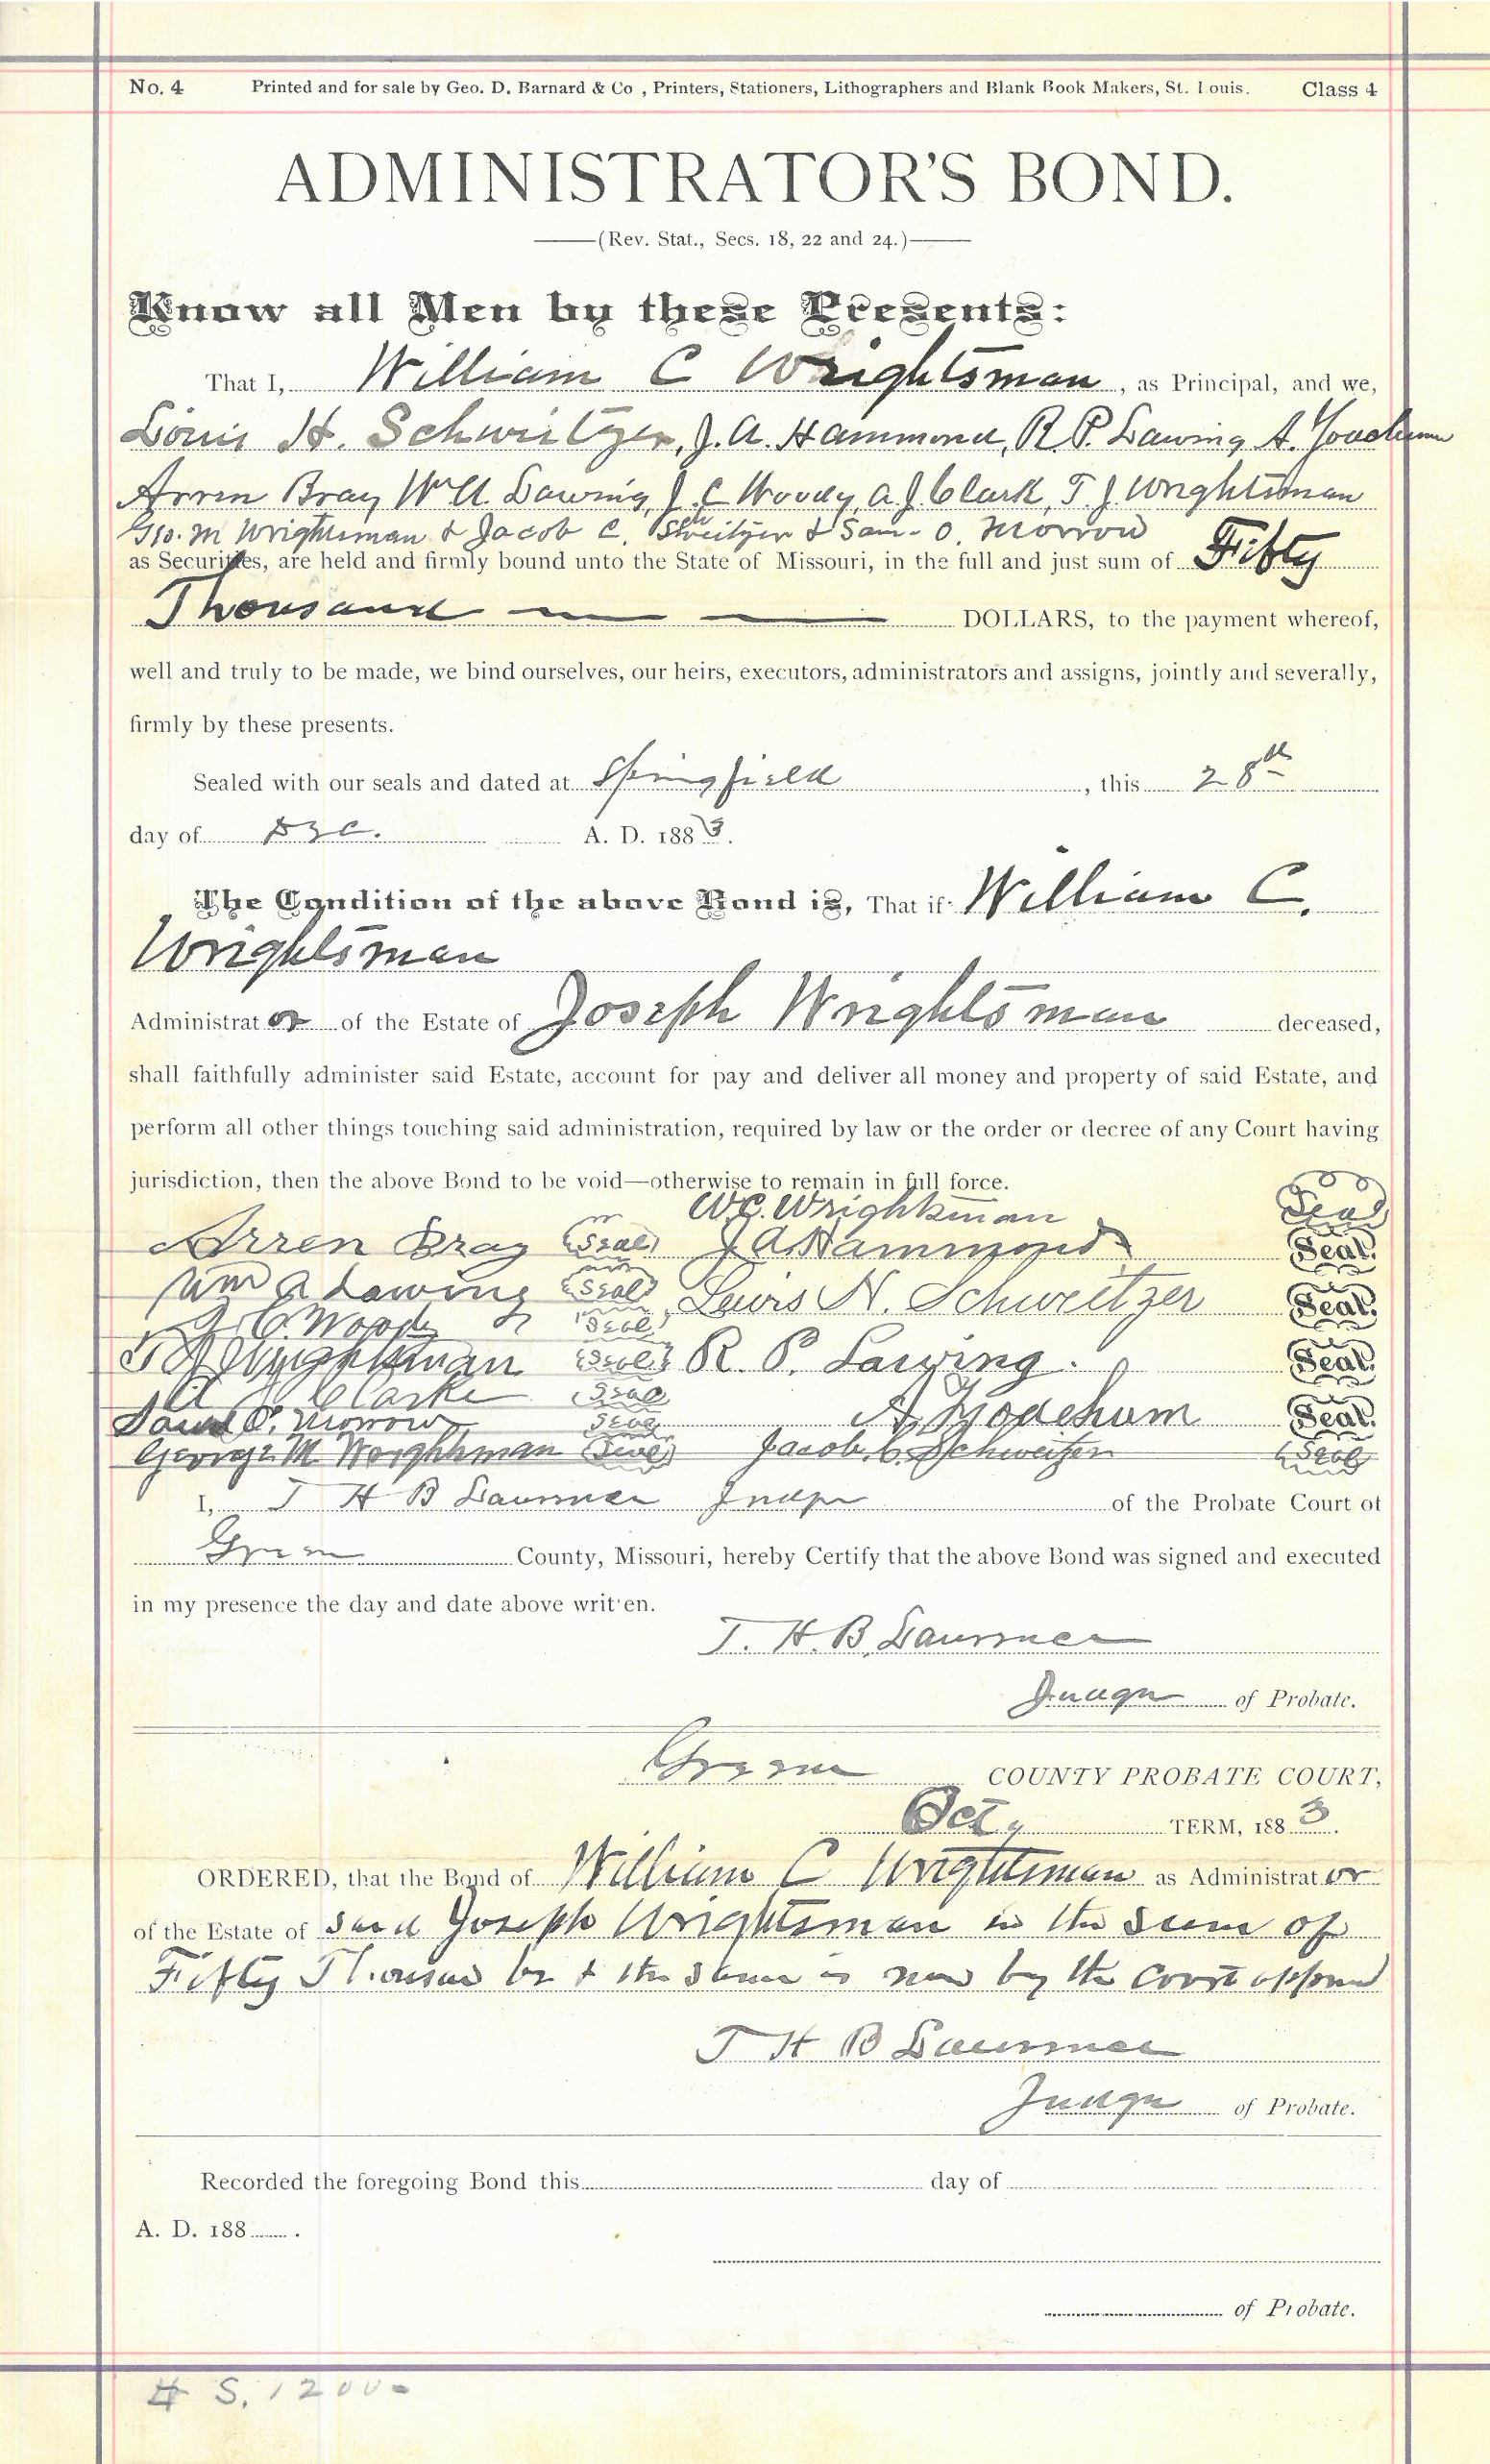 No. 4 Printed and for sale by Geo. D. Barnard & Co , Printers, Stationers, Lithographers and Blank Book Makers, St. Louis. Class 4
ADMINISTRATOR'S BOND.
(Rev. Stat., Secs. 18, 22 and 24.)
Know all Men by these Presents:
That I, William C Wrightsman, as Principal, and we,
Louis H. Schweitzer, J. A. Hammond, R. P. Lawing A. Yoachum
Arren Bray Wm A. Lawing, J. C Woody, A. J. Clark, T. J. Wrightsman
Geo. M Wrightsman & Jacob C. Shweitzer & Sam- O. Morrow
as Securities, are held and firmly bound unto the State of Missouri, in the full and just sum of Fifty
Thousand DOLLARS, to the payment whereof,
well and truly to be made, we bind ourselves, our heirs, executors, administrators and assigns, jointly and severally,
firmly by these presents.
Sealed with our seals and dated at Springfield, this 28th
day of Dec. A. D. 1883.
The Condition of the above Bond is, That if William C.
Wrightsman
Administrator of the Estate of Joseph Wrightsman deceased,
shall faithfully administer said Estate, account for pay and deliver all money and property of said Estate, and
perform all other things touching said administration, required by law or the order or decree of any Court having
jurisdiction, then the above Bond to be void—otherwise to remain in full force.
W. C. Wrightsman Seal
Arren Bray Seal J A Hammond Seal.
Wm A Lawing Seal Lewis N. Schweitzer Seal.
J. C. Woody Seal
T J Wrightsman Seal R. P. Lawing. Seal.
A J Clarke Seal
Saml O. Morrow Seal A Yoachum Seal.
George M Wrightsman Seal Jacob. C. Schweitzer Seal
I, T H B Judge of the Probate Court of
Green County, Missouri, hereby Certify that the above Bond was signed and executed
in my presence the day and date above written.
T. H. B.
Judge of Probate.
Green COUNTY PROBATE COURT,
Oct, TERM, 1883.
ORDERED, that the Bond of William C Wrightsman as Administrator
of the Estate of said Joseph Wrightsman in the sum of
Fifty Thousand be & the same is now by the Court approved
T H B
Judge of Probate.
Recorded the foregoing Bond this day of
A. D. 188 .
of Probate.
S. 1200-